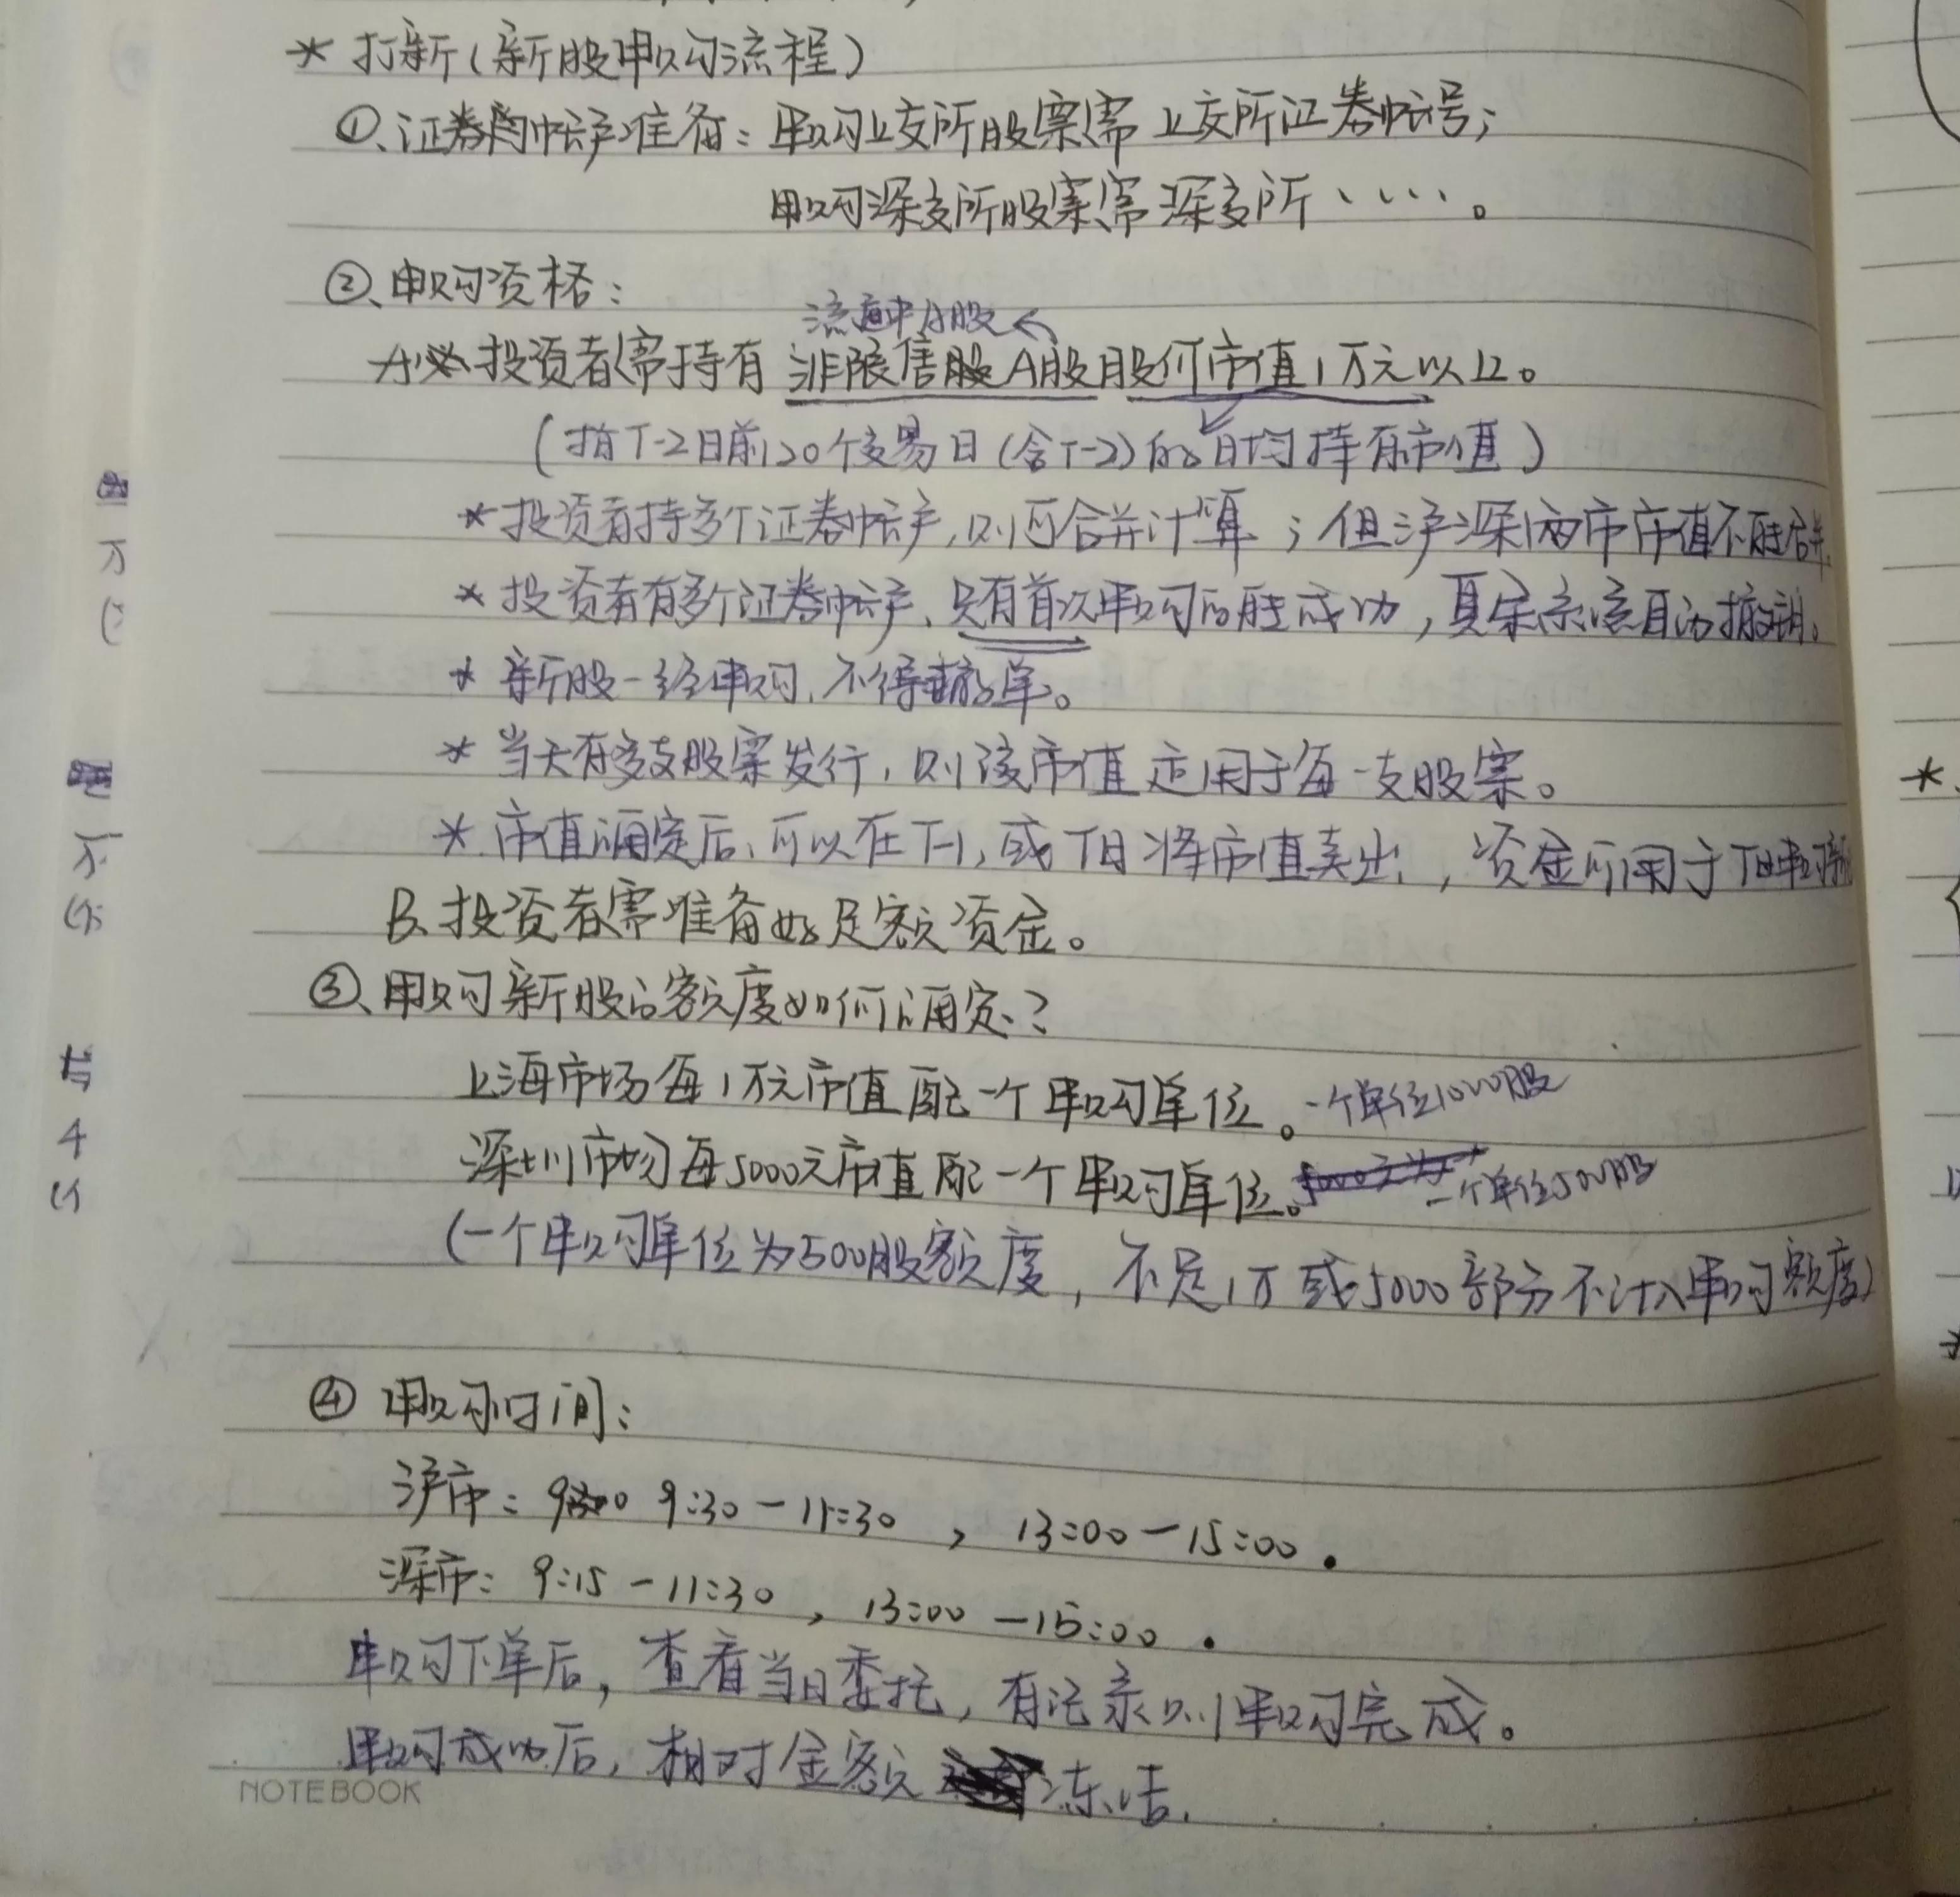 * 打新（新股申购流程）
①、证券帐户准备：申购上交所股票需上交所证券帐号；
申购深交所股票需深交所、····。
②、申购资格：
流通中A股
A、投资者需持有非限售A股股份市值1万元以上。
（指T-2日前20个交易日（含T-2）的日均持有市值）
* 投资者持多个证券帐户，则可合并计算；但沪深两市市值不能合并
* 投资者有多个证券帐户、只有首次申购可能成功，其余系统自动撤销。
* 新股一经申购，不得撤单。
* 当天有多支股票发行，则该市值适用于每一支股票。
* 市值确定后，可以在T-1，或T日将市值卖出，资金可用于T日申购新
B、投资者需准备好足额资金。
③、申购新股的额度如何确定？
上海市场每1万元市值配一个申购单位。一个单位1000股
深圳市场每5000元市值配一个申购单位。一个单位500股
（一个申购单位为500股额度，不足1万或5000部分不计入申购额度）
④ 申购时间：
沪市：9:30－11:30，13:00－15:00．
深市：9:15－11:30，13:00－15:00．
申购下单后，查看当日委托，有记录则申购完成。
申购成功后，相对金额冻结．
NOTEBOOK